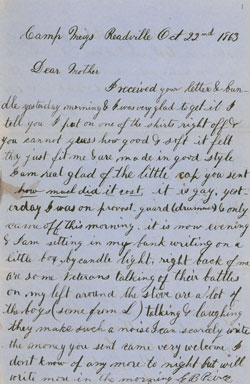 1
Camp Meigs Readville Oct 22nd 1863
Dear Mother
I received your letter & bun-
dle yesterday morning & I was very glad to get it I
tell you I put on one of the shirts right off &
you cannot guess how good & soft it felt
they just fit me & are made in good style
I am real glad of the little cap you sent
how much did it cost, it is gay, yest
erday I was on provost guard (drums) & only
came off this morning. it is now evening
& I am setting in my bunk writing on a
little box by candle light, right back of me
are some Veterans talking of their battles
on my left around the stove are a lot of
the boys (some from L) talking & laughing
they make such a noise I can scarcely write
the money you sent came very welcome I
dont know of any more to night but will
write more in the morning